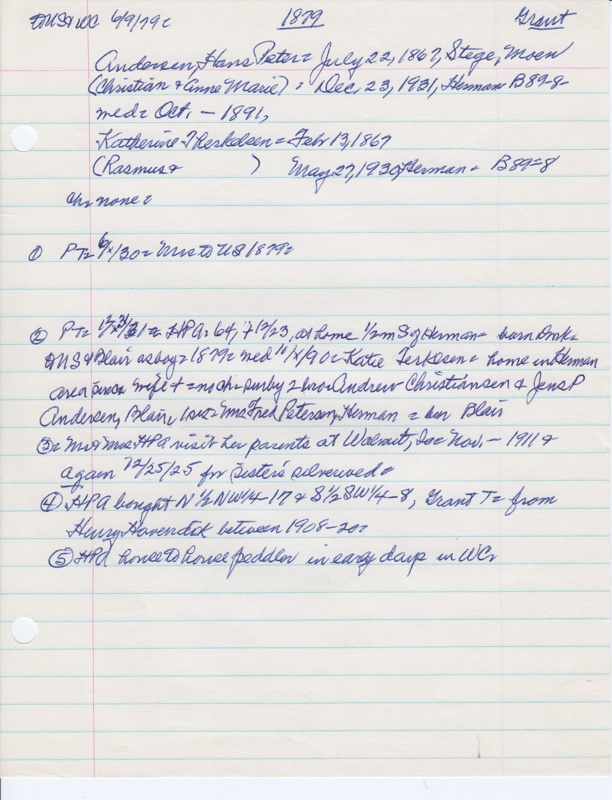 DMS & WC 6/9/79= 1879 Grant
Andersen, Hans Peter = July 22, 1867, Stege, Moen
(Christian & Anne Marie) = Dec. 23, 1931, Herman B89-8
med = Oct. - 1891,
Katherine Therkelsen = Feb 13, 1867
(Rasmus & ) May 27, 1930, Herman = B89=8
Ch= none=
① PT= 6/x/30= Mrs to US 1879=
② PT= HPA= 64, 7 12/23, at home 1/2 m S of Herman= born Dmk=
DMS & Blair as boy= 1879= med 10/x/90= Katie Terkelsen= home in Herman
area since wife + = no ch= surby 2 bro= Andrew Christiansen & Jens P
Andersen, Blair, 1 sis= Mrs Fred Petersen, Herman = bur Blair
③= Mr & Mrs HPA visit her parents at Walnut, Ia= Nov. - 1911 &
again 12/25/25 for sister's silverwed=
④ HPA bought N 1/2 NW 1/4-17 & S 1/2 SW 1/4-8, Grant T= from
Henry between 1908-20=
⑤ HPA house to house peddler in early days in WC=